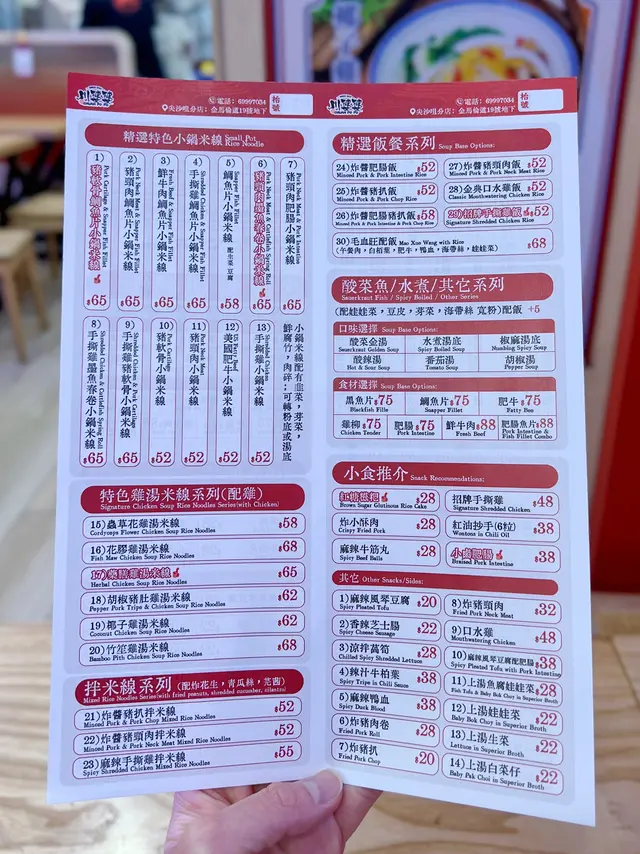 電話: 69997034
尖沙咀分店: 金馬倫道19號地下
枱號
精選特色小鍋米線 Small Pot Rice Noodle
1) 豬軟骨鯛魚片小鍋米線
Pork Cartilage & Snapper Fish Fillet
$65
2) 豬頸肉鯛魚片小鍋米線
Pork Neck Meat & Snapper Fish Fillet
$65
3) 鮮牛肉鯛魚片小鍋米線
Fresh Beef & Snapper Fish Fillet
$65
4) 手撕雞鯛魚片小鍋米線
Shredded Chicken & Snapper Fish Fillet
$65
5) 鯛魚片小鍋米線 配生菜, 豆腐
Snapper Fish Fillet
$58
6) 豬頸肉墨魚春卷小鍋米線
Pork Neck Meat & Cuttlefish Spring Roll
$65
7) 豬頸肉肥腸小鍋米線
Pork Neck Meat & Pork Intestine
$65
8) 手撕雞墨魚春卷小鍋米線
Shredded Chicken & Cuttlefish Spring Roll
$65
9) 手撕雞豬軟骨小鍋米線
Shredded Chicken & Pork Cartilage
$65
10) 豬軟骨小鍋米線
Pork Cartilage
$52
11) 豬頸肉小鍋米線
Pork Neck Meat
$52
12) 美國肥牛小鍋米線
$52
13) 手撕雞小鍋米線
Shredded Chicken
$52
小鍋米線配有韭菜, 芽菜,
鮮腐竹, 肉碎; 可轉粉底或湯底
特色雞湯米線系列(配雞)
Signature Chicken Soup Rice Noodles Series(with Chicken)
15) 蟲草花雞湯米線 $58
Cordyceps Flower Chicken Soup Rice Noodles
16) 花膠雞湯米線 $68
Fish Maw Chicken Soup Rice Noodles
17) 藥膳雞湯米線 $65
Herbal Chicken Soup Rice Noodles
18) 胡椒豬肚雞湯米線 $62
Pepper Pork Tripe & Chicken Soup Rice Noodles
19) 椰子雞湯米線 $62
Coconut Chicken Soup Rice Noodles
20) 竹笙雞湯米線 $68
Bamboo Pith Chicken Soup Rice Noodles
拌米線系列 (配炸花生, 青瓜絲, 芫茜)
Mixed Rice Noodles Series(with fried peanuts, shredded cucumber, cilantro)
21) 炸醬豬扒拌米線 $52
Minced Pork & Pork Chop Mixed Rice Noodles
22) 炸醬豬頸肉拌米線 $52
Minced Pork & Pork Neck Meat Mixed Rice Noodles
23) 麻辣手撕雞拌米線 $55
Spicy Shredded Chicken Mixed Rice Noodles
電話: 69997034
尖沙咀分店: 金馬倫道19號地下
枱號
精選飯餐系列 Soup Base Options:
24) 炸醬肥腸飯 $52
Minced Pork & Pork Intestine Rice
25) 炸醬豬扒飯 $52
Minced Pork & Pork Chop Rice
26) 炸醬肥腸豬扒飯 $58
Minced Pork & Pork Intestine & Pork Chop Rice
27) 炸醬豬頸肉飯 $52
Minced Pork & Pork Neck Meat Rice
28) 金典口水雞飯 $52
Classic Mouthwatering Chicken Rice
29) 招牌手撕雞飯 $52
Signature Shredded Chicken Rice
30) 毛血旺配飯 Mao Xue Wang with Rice $68
(午餐肉, 白栢葉, 肥牛, 鴨血, 海帶絲, 娃娃菜)
酸菜魚/水煮/其它系列
Sauerkraut Fish / Spicy Boiled / Other Series
(配娃娃菜, 豆皮, 芽菜, 海帶絲 寬粉)配飯 +5
口味選擇 Soup Base Options:
酸菜金湯
Sauerkraut Golden Soup
水煮湯底
Spicy Boiled Soup
椒麻湯底
Numbing Spicy Soup
酸辣湯
Hot & Sour Soup
番茄湯
Tomato Soup
胡椒湯
Pepper Soup
食材選擇 Soup Base Options:
黑魚片 $75
Blackfish Fille
鯛魚片 $75
Snapper Fillet
肥牛 $75
Fatty Beo
雞柳 $75
Chicken Tender
肥腸 $75
Pork Intestine
鮮牛肉 $88
Fresh Beef
肥腸魚片 $88
Pork Intestine & Fish Fillet Combo
小食推介 Snack Recommendations:
紅糖糍粑 $28
Brown Sugar Glutinous Rice Cake
炸小酥肉 $28
Crispy Fried Pork
麻辣牛筋丸 $28
Spicy Beef Balls
招牌手撕雞 $48
Signature Shredded Chicken
紅油抄手(6粒) $38
Wontons in Chili Oil
小鹵肥腸 $38
Braised Pork Intestine
其它 Other Snacks/Sides:
1) 麻辣風琴豆腐 $20
Spicy Pleated Tofu
2) 香辣芝士腸 $22
Spicy Cheese Sausage
3) 涼拌萵筍 $28
Chilled Spicy Shredded Lettuce
4) 辣汁牛栢葉 $38
Spicy Tripe in Chili Sauce
5) 麻辣鴨血 $38
Spicy Duck Blood
6) 炸豬肉卷 $28
Fried Pork Roll
7) 炸豬扒 $20
Fried Pork Chop
8) 炸豬頸肉 $32
Fried Pork Neck Meat
9) 口水雞 $48
Mouthwatering Chicken
10) 麻辣風琴豆腐配肥腸 $38
Spicy Pleated Tofu with Pork Intestine
11) 上湯魚腐娃娃菜 $28
Fish Tofu & Baby Bok Choy in Superior Broth
12) 上湯娃娃菜 $22
Baby Bok Choy in Superior Broth
13) 上湯生菜 $22
Lettuce in Superior Broth
14) 上湯白菜仔 $22
Baby Pak Choi in Superior Broth